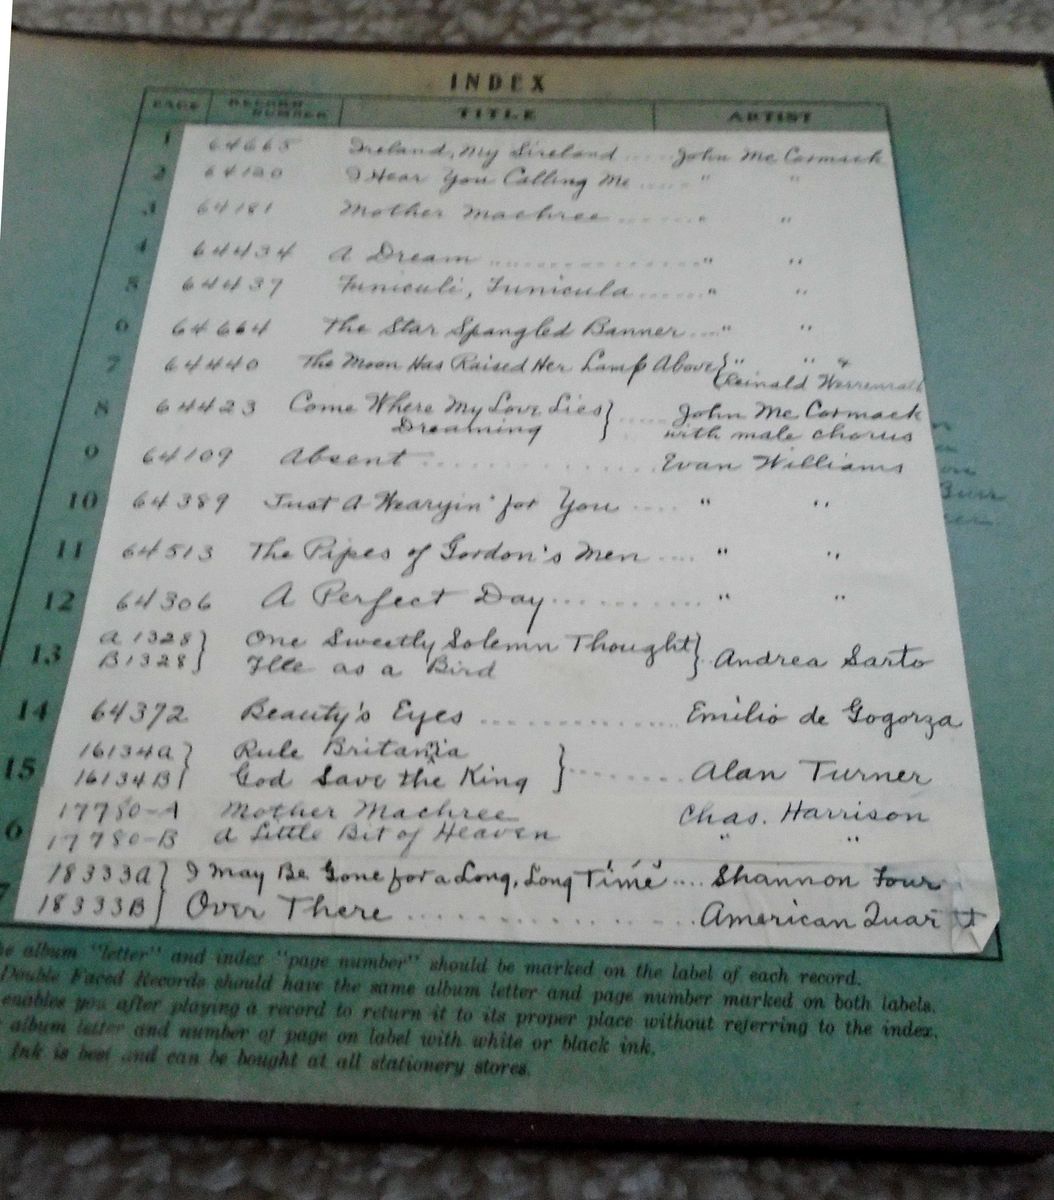 INDEX
PAGE RECORD NUMBER TITLE ARTIST
1 64665 Ireland, My Sireland .... John McCormack
2 64120 I Hear You Calling Me .... " "
3 64181 Mother Machree ....... " "
4 64434 A Dream ................ " "
5 64437 Funiculi, Funicula ...... " "
6 64664 The Star Spangled Banner .... " "
7 64440 The Moon Has Raised Her Lamp Above } " " &
(Reinald Werrenrath
8 64423 Come Where My Love Lies } .... John McCormack
Dreaming with male chorus
9 64109 Absent ............. Evan Williams
10 64389 Just A-Wearyin' for You .... " "
11 64513 The Pipes of Gordon's Men .... " "
12 64306 A Perfect Day .......... " "
13 A 1328 } One Sweetly Solemn Thought } Andrea Sarto
B1328 } Flee as a Bird
14 64372 Beauty's Eyes ............... Emilio de Gogorza
16134A } Rule Britannia }
15 16134B } God Save the King } ........ Alan Turner
17780-A Mother Machree Chas. Harrison
6 17780-B A Little Bit of Heaven " "
18333A } I May Be Gone for a Long, Long Time .... Shannon Four
7 18333B } Over There ................ American Quar t
he album "letter" and index "page number" should be marked on the label of each record.
Double Faced Records should have the same album letter and page number marked on both labels.
enables you after playing a record to return it to its proper place without referring to the index.
album letter and number of page on label with white or black ink.
Ink is best and can be bought at all stationery stores.